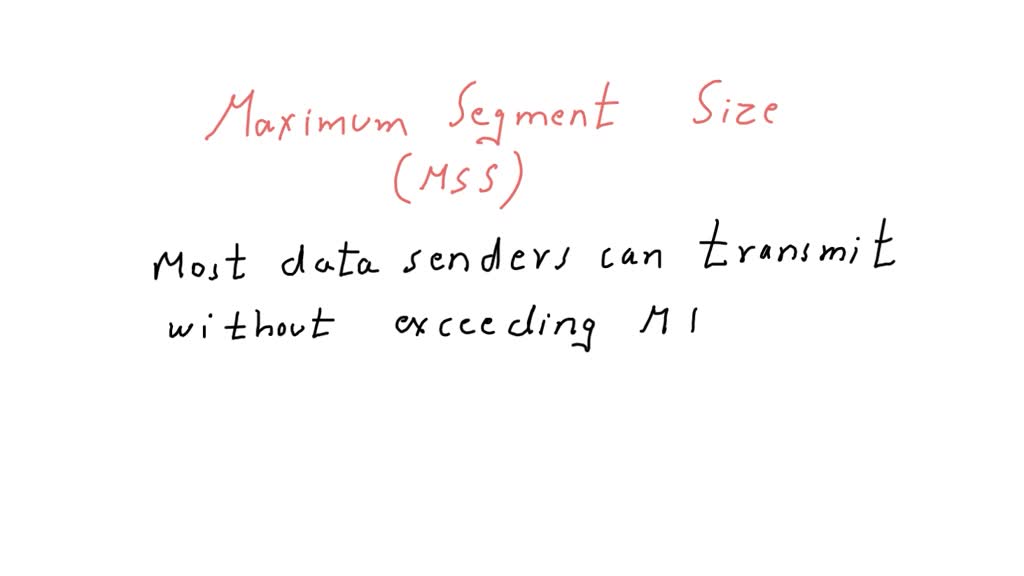 Maximum Segment Size
(MSS)
Most data senders can transmit
without exceeding M